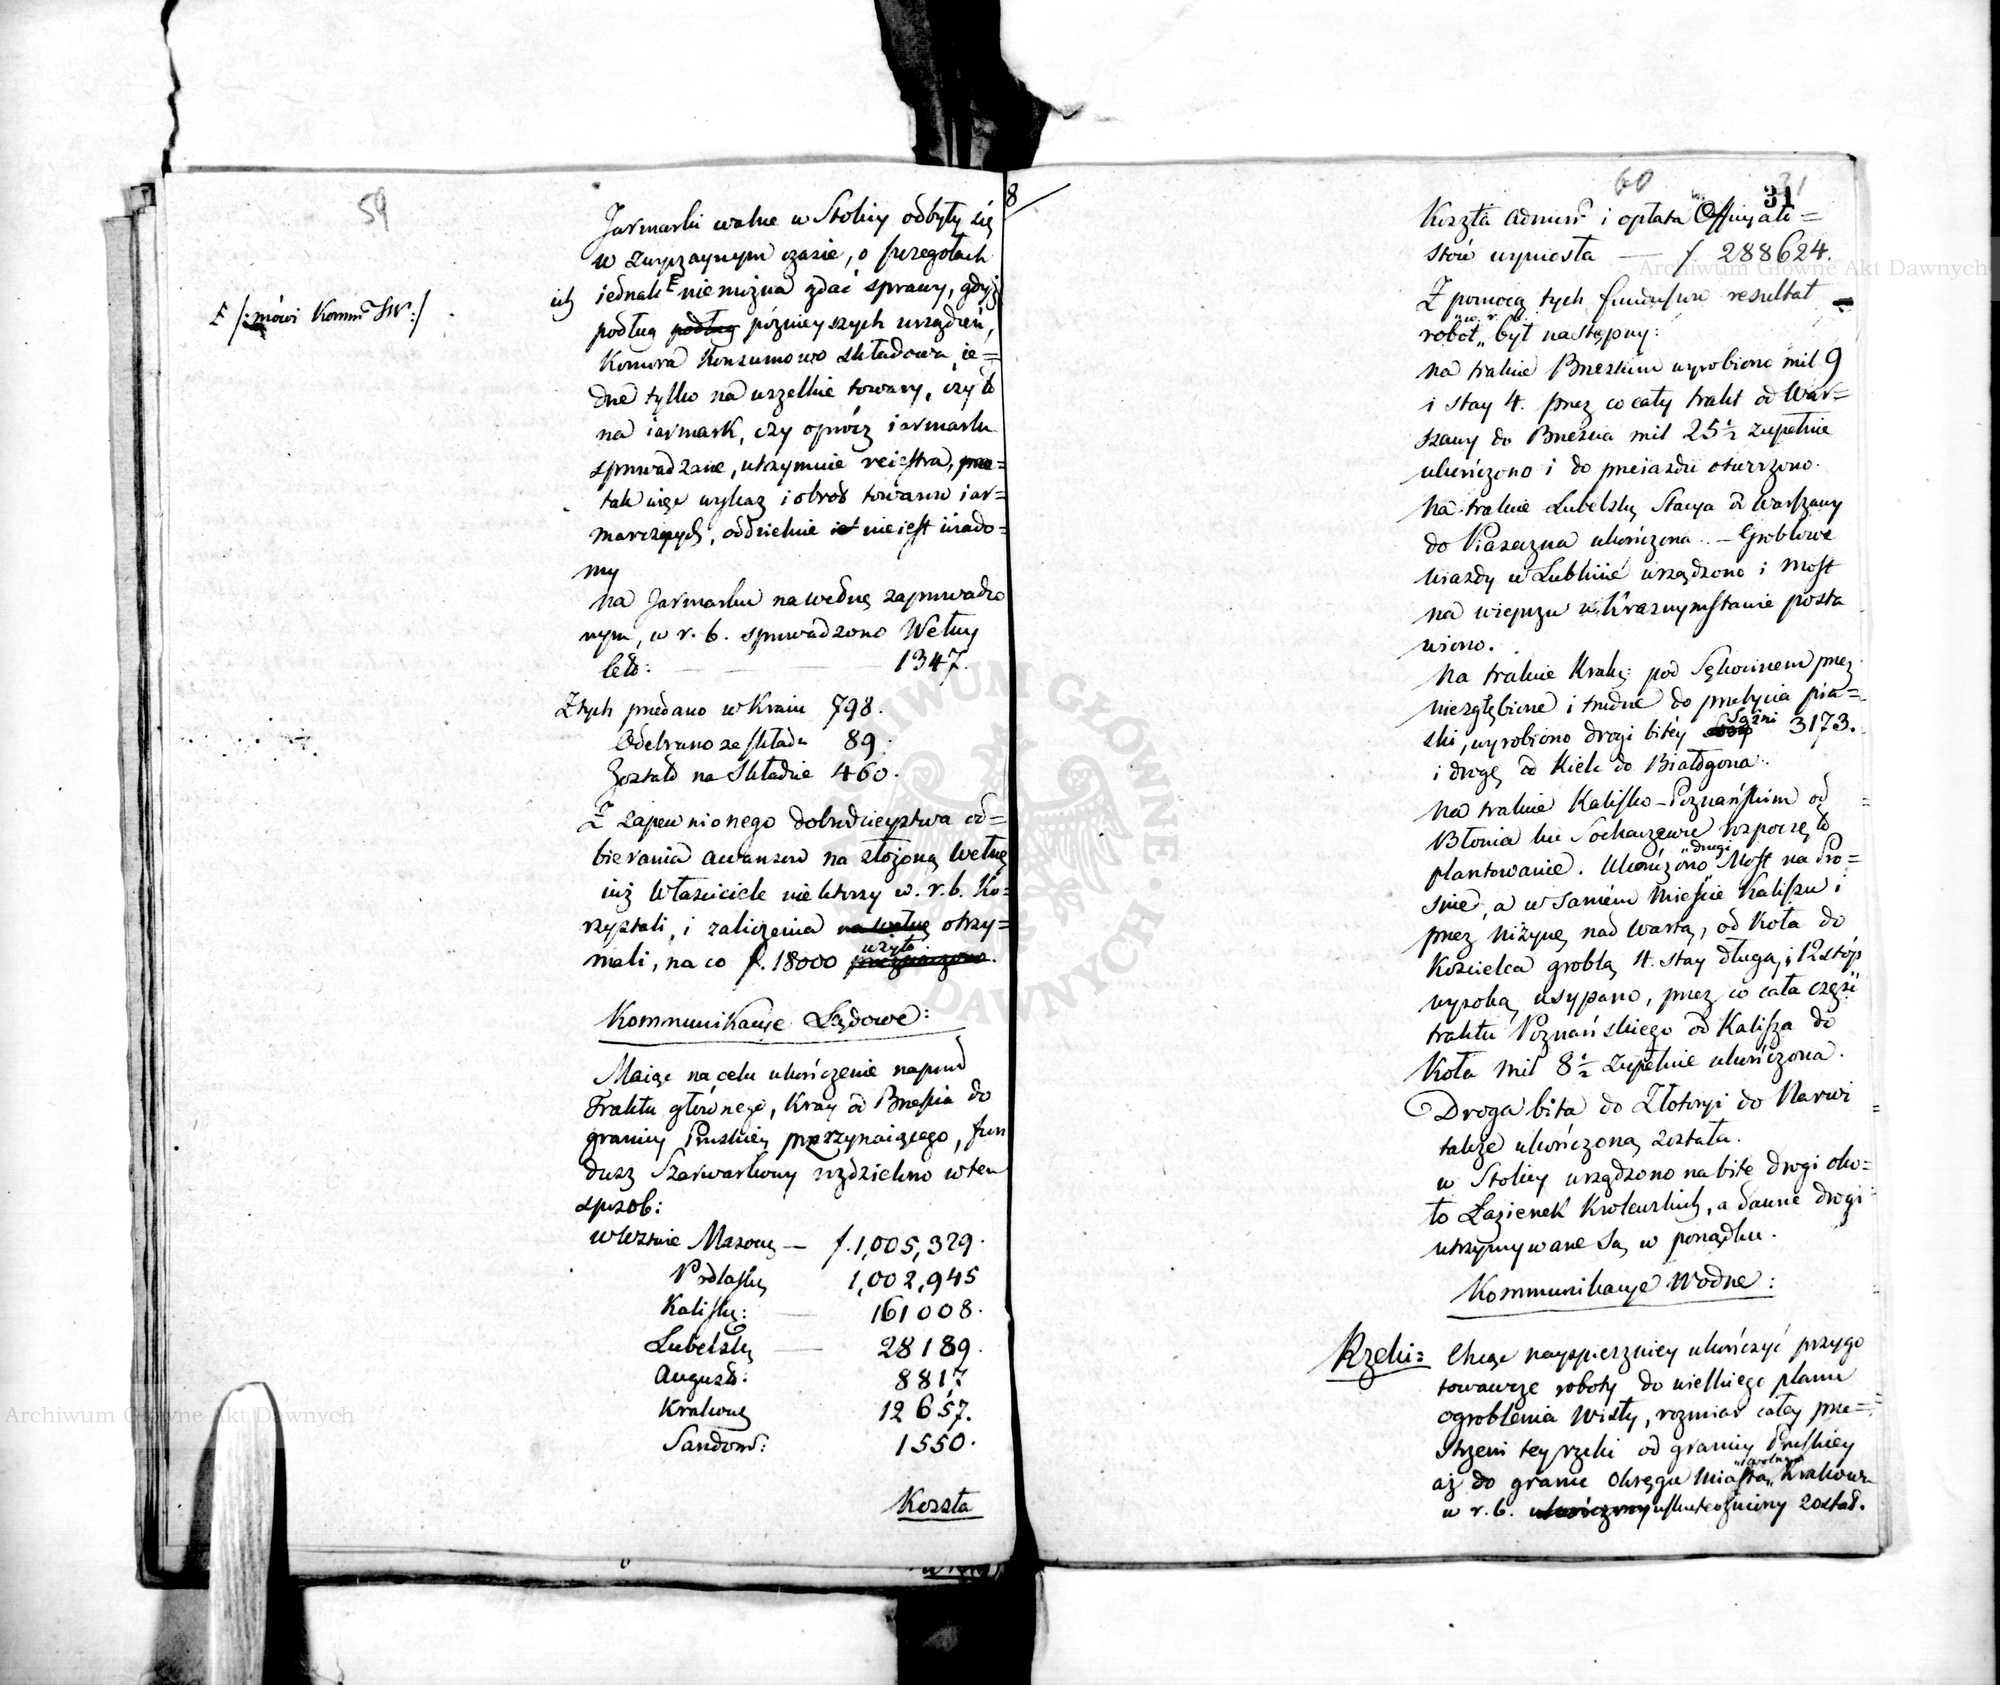 59
Jarmarki walne w Stolicy odbyły się
w zwyczaynym czasie, o szczegołach
ich iednak F nie można zdać sprawy, gdyż
F /: mówi Komm SW :/
podług podług poźnieyszych urządzeń,
Komora Konsumowo składowa ie=
dne tylko na wszelkie towary, czy to
na iarmark, czy oprócz iarmarku
sprowadzane, utrzymuie reiestra, prze=
tak więc wykaz i obrót towarow iar=
marcznych, oddzielnie iest nie iest wiado=
my
Na Jarmarku na wełnę zaprowadzo
nym, w r. b. sprowadzono Wełny
Cet: — 1347.
Z tych przedano w Kraiu 798.
Odebrano ze składu 89.
Zostało na Składzie 460.
Z zapewnionego dobrodzieystwa od=
bierania awansow na złożoną Wełnę
iuż Właściciele niektorzy w. r. b. Ko=
rzystali, i zaliczenia na wełnę otrzy=
mali, na co f. 18000 użyto przeznaczono.
Kommunikacye Lądowe:
Maiąc na celu ukończenie naprzod
Traktu głównego, Kray od Brześcia do
granicy Pruskiey przerzynaiącego, fun
dusz Szarwarkowy rozdzielono w ten
sposob:
w Wztwie Mazow — f. 1,005,329.
Podlaskie 1,002,945
Kaliskie: — 161008.
Lubelskie — 28189.
August: 8817
Krakow 12657.
Sandom: 1550.
Koszta
8
60
31
Koszta admin i opłata Officyali=
stów wyniosła — f 288624.
Z pomocą tych funduszow resultat
robot „w. r. b.„ był następny:
na trakcie Brzeskim wyrobiono mil 9
i stay 4. przez co cały trakt od War=
szawy do Brześcia mil 25½ zupełnie
ukończono i do przeiazdu otworzono.
Na trakcie Lubelskim Stacya od Warszawy
do Piaseczna ukończona. — Groblowe
wiazdy w Lublinie urządzono i Most
na wieprzu w Krasnymstawie posta
wiono.
Na trakcie Krak: pod Sękocinem przez
niezgłębione i trudne do przebycia pia=
ski, wyrobiono drogi bitéy Sążni 3173.
i drogę od Kielc do Białogona.
Na trakcie Kalisko-Poznańskim od
Błonia ku Sochaczewu rozpoczęto
plantowanie. Ukończono „drugi Most na Pro=
snie, a w samém Mieście Kaliszu i
przez Niżynę nad Wartą, od Koła do
Kościelca groblą 4. stay długą, i 12 stóp
wysoką usypano, przez co cała część
traktu Poznańskiego od Kalisza do
Koła mil 8½ zupełnie ukończona.
Droga bita do Złotoryi do Narwi
także ukończoną została.
w Stolicy urządzono na bite drogi oko=
ło Łazienek Krolewskich, a dawne drogi
utrzymywane są w porządku.
Kommunikacye Wodne:
Rzeki: Chcąc nayspieszniey ukończyć przygo
towawcze roboty do wielkiego planu
ogroblenia Wisły, rozmiar całey prze=
strzeni tey rzeki od granicy Pruskiey
aż do granic Okręgu Miasta „wolnego„ Krakowa
w r. b. ukończony uskuteczniony został.
Archiwum Główne Akt Dawnych
Archiwum Główne Akt Dawnych
ARCHIWUM GŁÓWNE AKT DAWNYCH